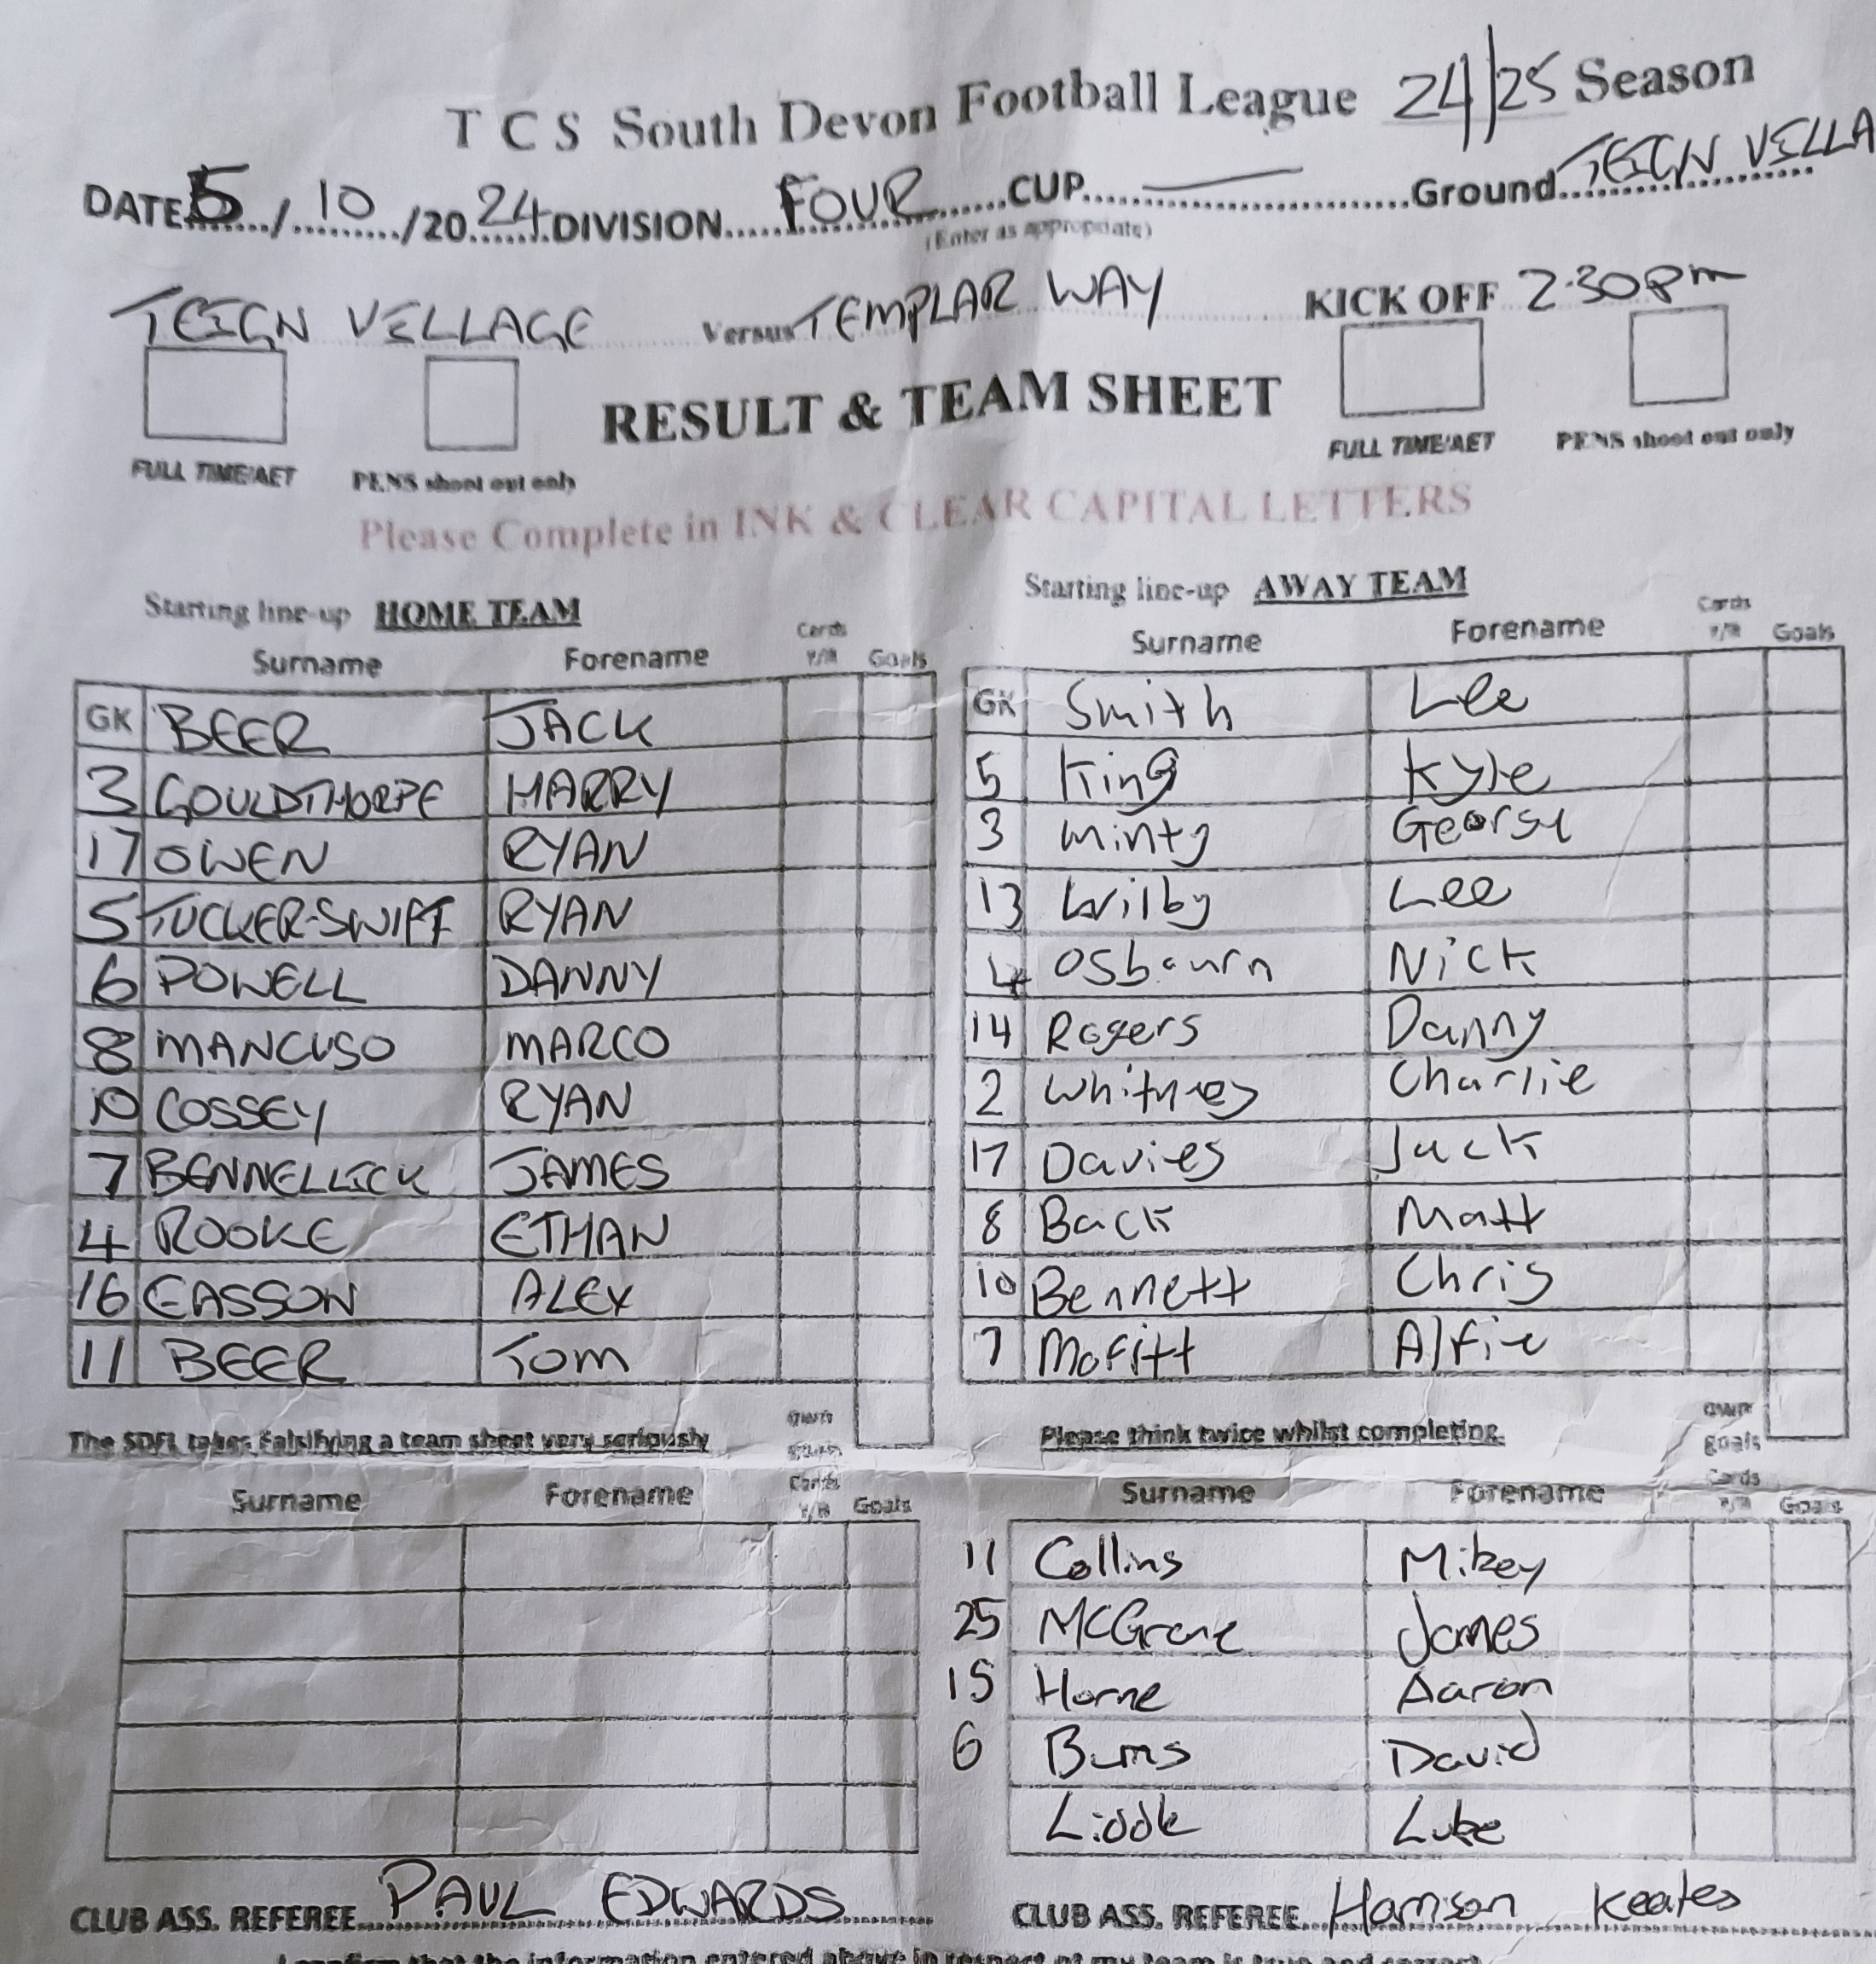 T C S South Devon Football League 24/25 Season
DATE 5 / 10 /20 24 DIVISION FOUR CUP — Ground TEIGN VILLA
(Enter as appropriate)
TEIGN VILLAGE Versus TEMPLAR WAY KICK OFF 2.30pm
RESULT & TEAM SHEET
FULL TIME/AET PENS shoot out only FULL TIME/AET PENS shoot out only
Please Complete in INK & CLEAR CAPITAL LETTERS
Starting line-up HOME TEAM
Surname Forename Cards Y/R Goals
GK BEER JACK
3 GOULDTHORPE HARRY
17 OWEN RYAN
5 TUCKER-SWIFT RYAN
6 POWELL DANNY
8 MANCUSO MARCO
10 COSSEY RYAN
7 BENNELLICK JAMES
4 ROOKE ETHAN
16 EASSON ALEX
11 BEER TOM
The SDFL takes Falsifying a team sheet very seriously
own goals
Surname Forename Cards Y/R Goals
CLUB ASS. REFEREE PAUL EDWARDS
Starting line-up AWAY TEAM
Surname Forename Cards Y/R Goals
GK Smith Lee
5 King Kyle
3 Minty George
13 Wilby Lee
4 Osbourn Nick
14 Rogers Danny
2 Whitney Charlie
17 Davies Jack
8 Back Matt
10 Bennett Chris
7 Mofitt Alfie
Please think twice whilst completing
own goals
Surname Forename Cards Y/R Goals
11 Collins Mikey
25 McGrane James
15 Horne Aaron
6 Burns David
Liddle Luke
CLUB ASS. REFEREE Harrison Keates
I confirm that the information entered above in respect of my team is true and correct